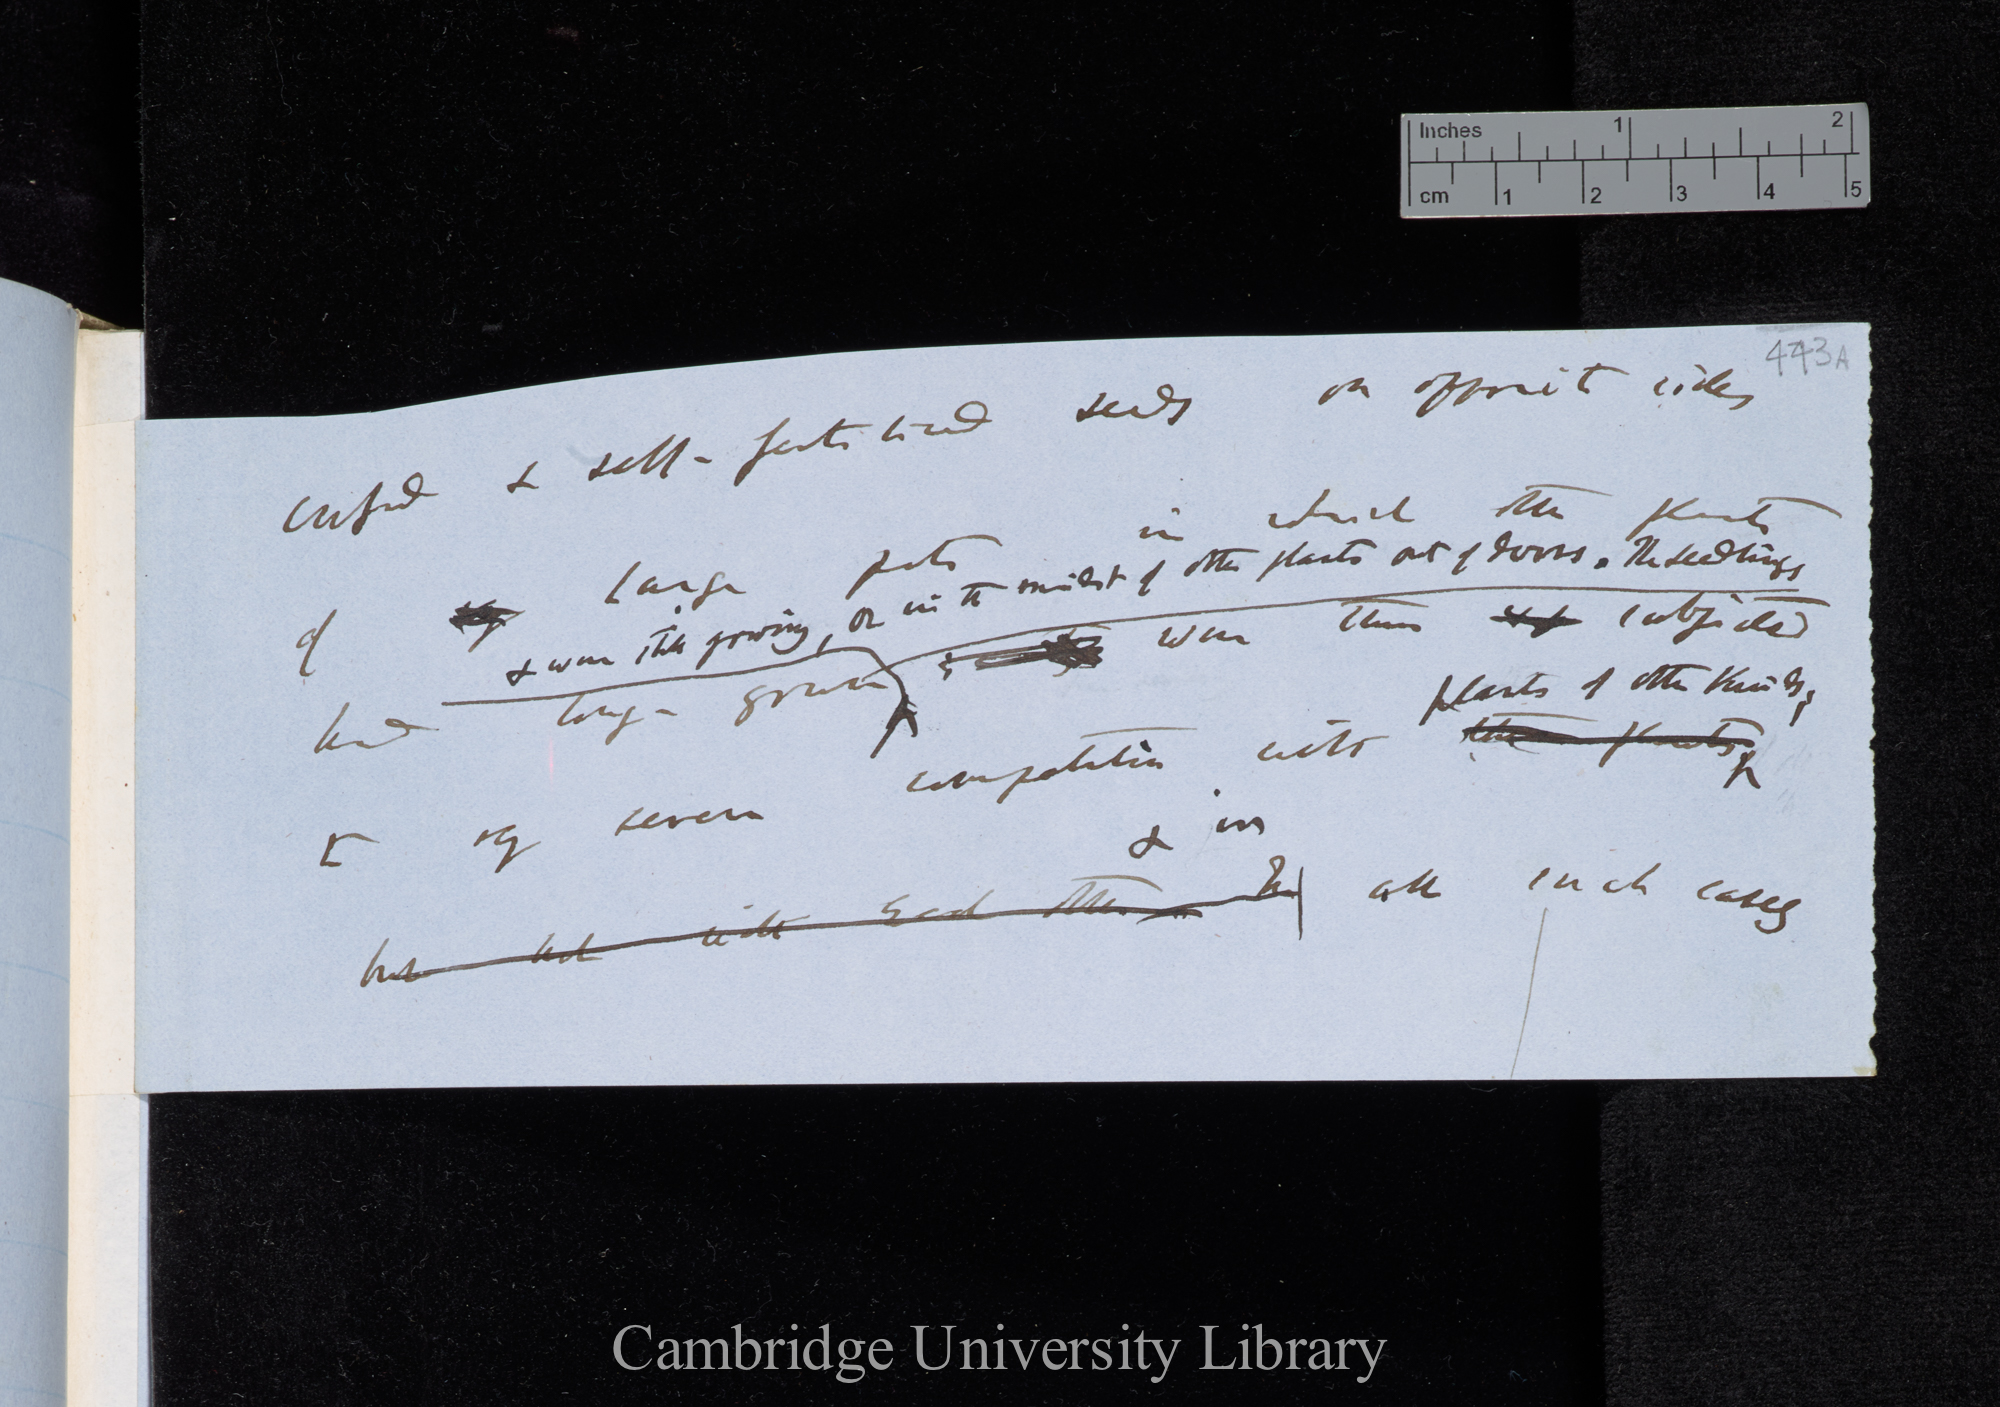 443A
crossed & self-fertilised seeds on opposite sides
of large pots in which other plants
& were still growing, or in the midst of other plants out of doors. The seedlings
had long grown were thus subjected
plants of other kinds,
to very severe competition with other plants,
& in
but not with each other In all such cases
Inches 1 2
cm 1 2 3 4 5
Cambridge University Library